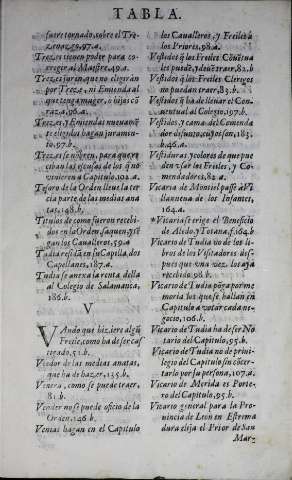 TABLA.
fuere tornado, sobre el Tre-
zenazgo, 97.a.
Trezes tienen poder para co-
rregir al Maestre, 40.a.
Trezes juren, que no eligirán
por Treze, ni Emienda al
que tenga muger, o hijos cõ
raza, 96.a.
Trezes, y Emiendas nueuamẽ-
te elegidos hagan juramen-
to, 97.b.
Trezes se nõbren, para que re-
ciban las escusas de los q̃ no
vinieren a Capitulo, 101.a
Tesoro de la Orden lleue la ter
cia parte de las medias ana-
tas, 148.b.
Titulos de como fueron recebi
dos en la Orden saquen, y sir
gan los Caualleros, 59.a
Tudia residã en su Capilla, dos
Capellanes, 187.a.
Tudia se anexa la renta della
al Colegio de Salamanca,
186.b.
V
VAndo que hiziere algũ
Freile, como ha de ser cas
tigado, 51.b.
Veedor de las medias anatas,
que ha de hazer, 135.b.
Venera, como se puede traer,
81.b.
Vender no se puede oficio de la
Orden, 146.b.
Ventas hagan en el Capitulo
los Caualleros, y Freiles à
los Priores, 98.a.
Vestidos q̃ los Freiles Cõuẽtua
les puedẽ, y deuẽ traer, 82.b.
Vestidos q̃ los Freiles Clerigos
no puedan traer, 83.b.
Vestidos q̃ ha de lleuar el Con-
uentual al Colegio, 197.b.
Vestidos, y cama del Comenda
dor difunto, cuyos son, 183.
b. 46.a.
Vestiduras, y colores de que pue
den vsar los Freiles, y Co-
mendadores, 82.a.
Vicaria de Montiel passe à Vi
llanueua de los Infantes,
164.a.
*Vicaria se erige el Beneficio
de Aledo, y Totana, f.164.b
Vicario de Tudia no de los li-
bros de los Visitadores des-
pues que vna vez los aya
recebido, 98.b.
Vicario de Tudia põga por me
moria los que se hallan en
Capitulo a votar cada ne-
gocio, 106.b.
Vicario de Tudia ha de ser No
tario del Capitulo, 95.b.
Vicario de Tudia no de priui-
legio del Capitulo sin cõcer-
tarlo por su persona, 107.a.
Vicario de Merida es Porte-
ro del Capitulo, 95.b.
Vicario general para la Pro-
uincia de Leon en Estrema
dura elija el Prior de San
Mar-